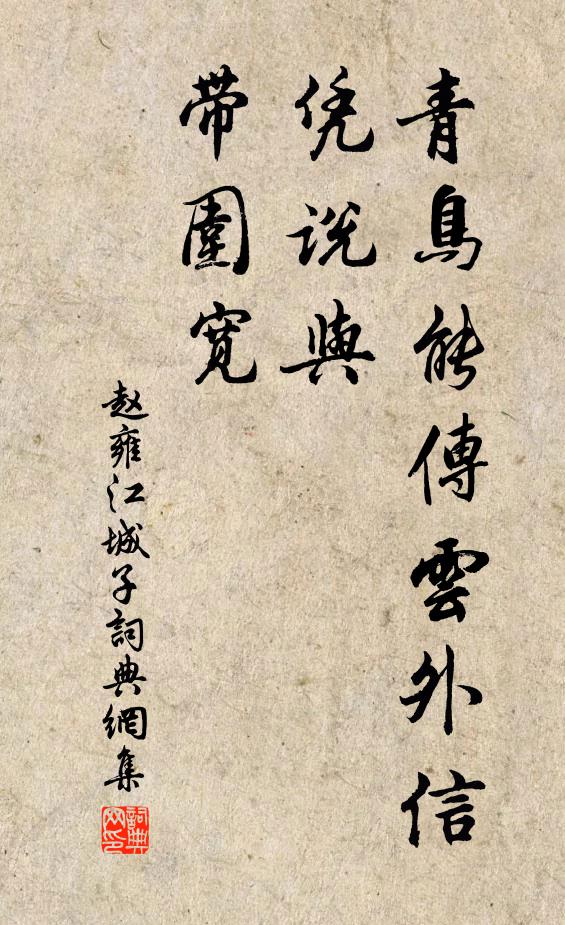 青鳥能傳雲外信
凭説與
带圍寬
赵雍江城子詞典網集
詞典网印